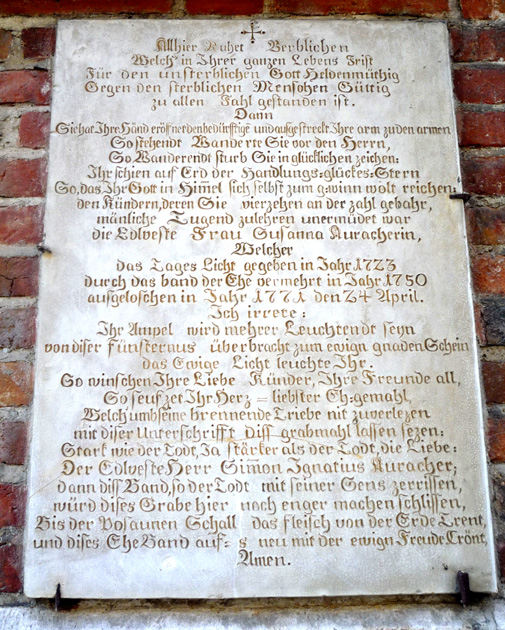 Allhier Ruhet Verblichen
Welch' in Ihrer ganzen Lebens Frist
Für den unsterblichen Gott Heldenmüthig
Gegen den sterblichen Menschen Güttig
zu allen Fahl gestanden ist.
Dann
Sie hat Ihre Händ eröfnet den bedürfftigē und aufgestreckt Ihre arm zu den armen
So stehendt Wanderte Sie vor den Herrn,
So Wanderendt sturb Sie in glücklichen zeichen:
Ihr schien auf Erd der Handlungs-glückes-Stern
So, das Ihr Gott in Him̄el sich selbst zum gewinn wolt reichen:
den Kündern, deren Sie vierzehen an der zahl gebahr,
mänliche Tugend zulehren unermüdet war
die Edlveste Frau Susanna Auracherin,
Welcher
das Tages Licht gegeben in Jahr 1723
durch das band der Ehe vermehrt in Jahr 1750
ausgeloschen in Jahr 1771 den 24 April.
Ich irrete:
Ihr Ampel wird mehrer Leuchtendt seyn
von diser Fünsternus überbracht zum ewign gnaden Schein
das Ewige Licht leuchte Ihr.
So winschen Ihre Liebe Künder, Ihre Freunde all,
So seufzet Ihr Herz = liebster Eh=gemahl,
Welch umb seine brennende Triebe nit zuverlezen
mit diser Unterschrifft diss grabmahl lassen sezen:
Stark wie der Todt, Ja stärker als der Todt, die Liebe:
Der Edlveste Herr Simon Ignatius Auracher;
dann diss Band, so der Todt mit seiner Sens zerrissen,
würd dises Grabe hier noch enger machen schlissen,
Bis der Posaunen Schall das fleisch von der Erde Trent,
und dises Ehe Band auf=s neu mit der ewign Freude Crönt,
Amen.